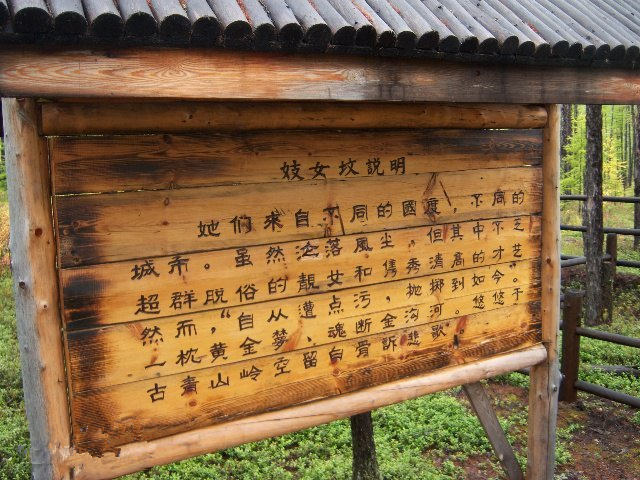 妓女坟説明
她们来自不同的國度，不同的
城市。虽然沦落風尘，但其中不乏
超群脱俗的靓女和隽秀清高的才艺
然而，“自从遭点污，抛掷到如今”。
一枕黄金梦，魂断金沟河。悠悠于
古青山岭空留白骨訴悲歌